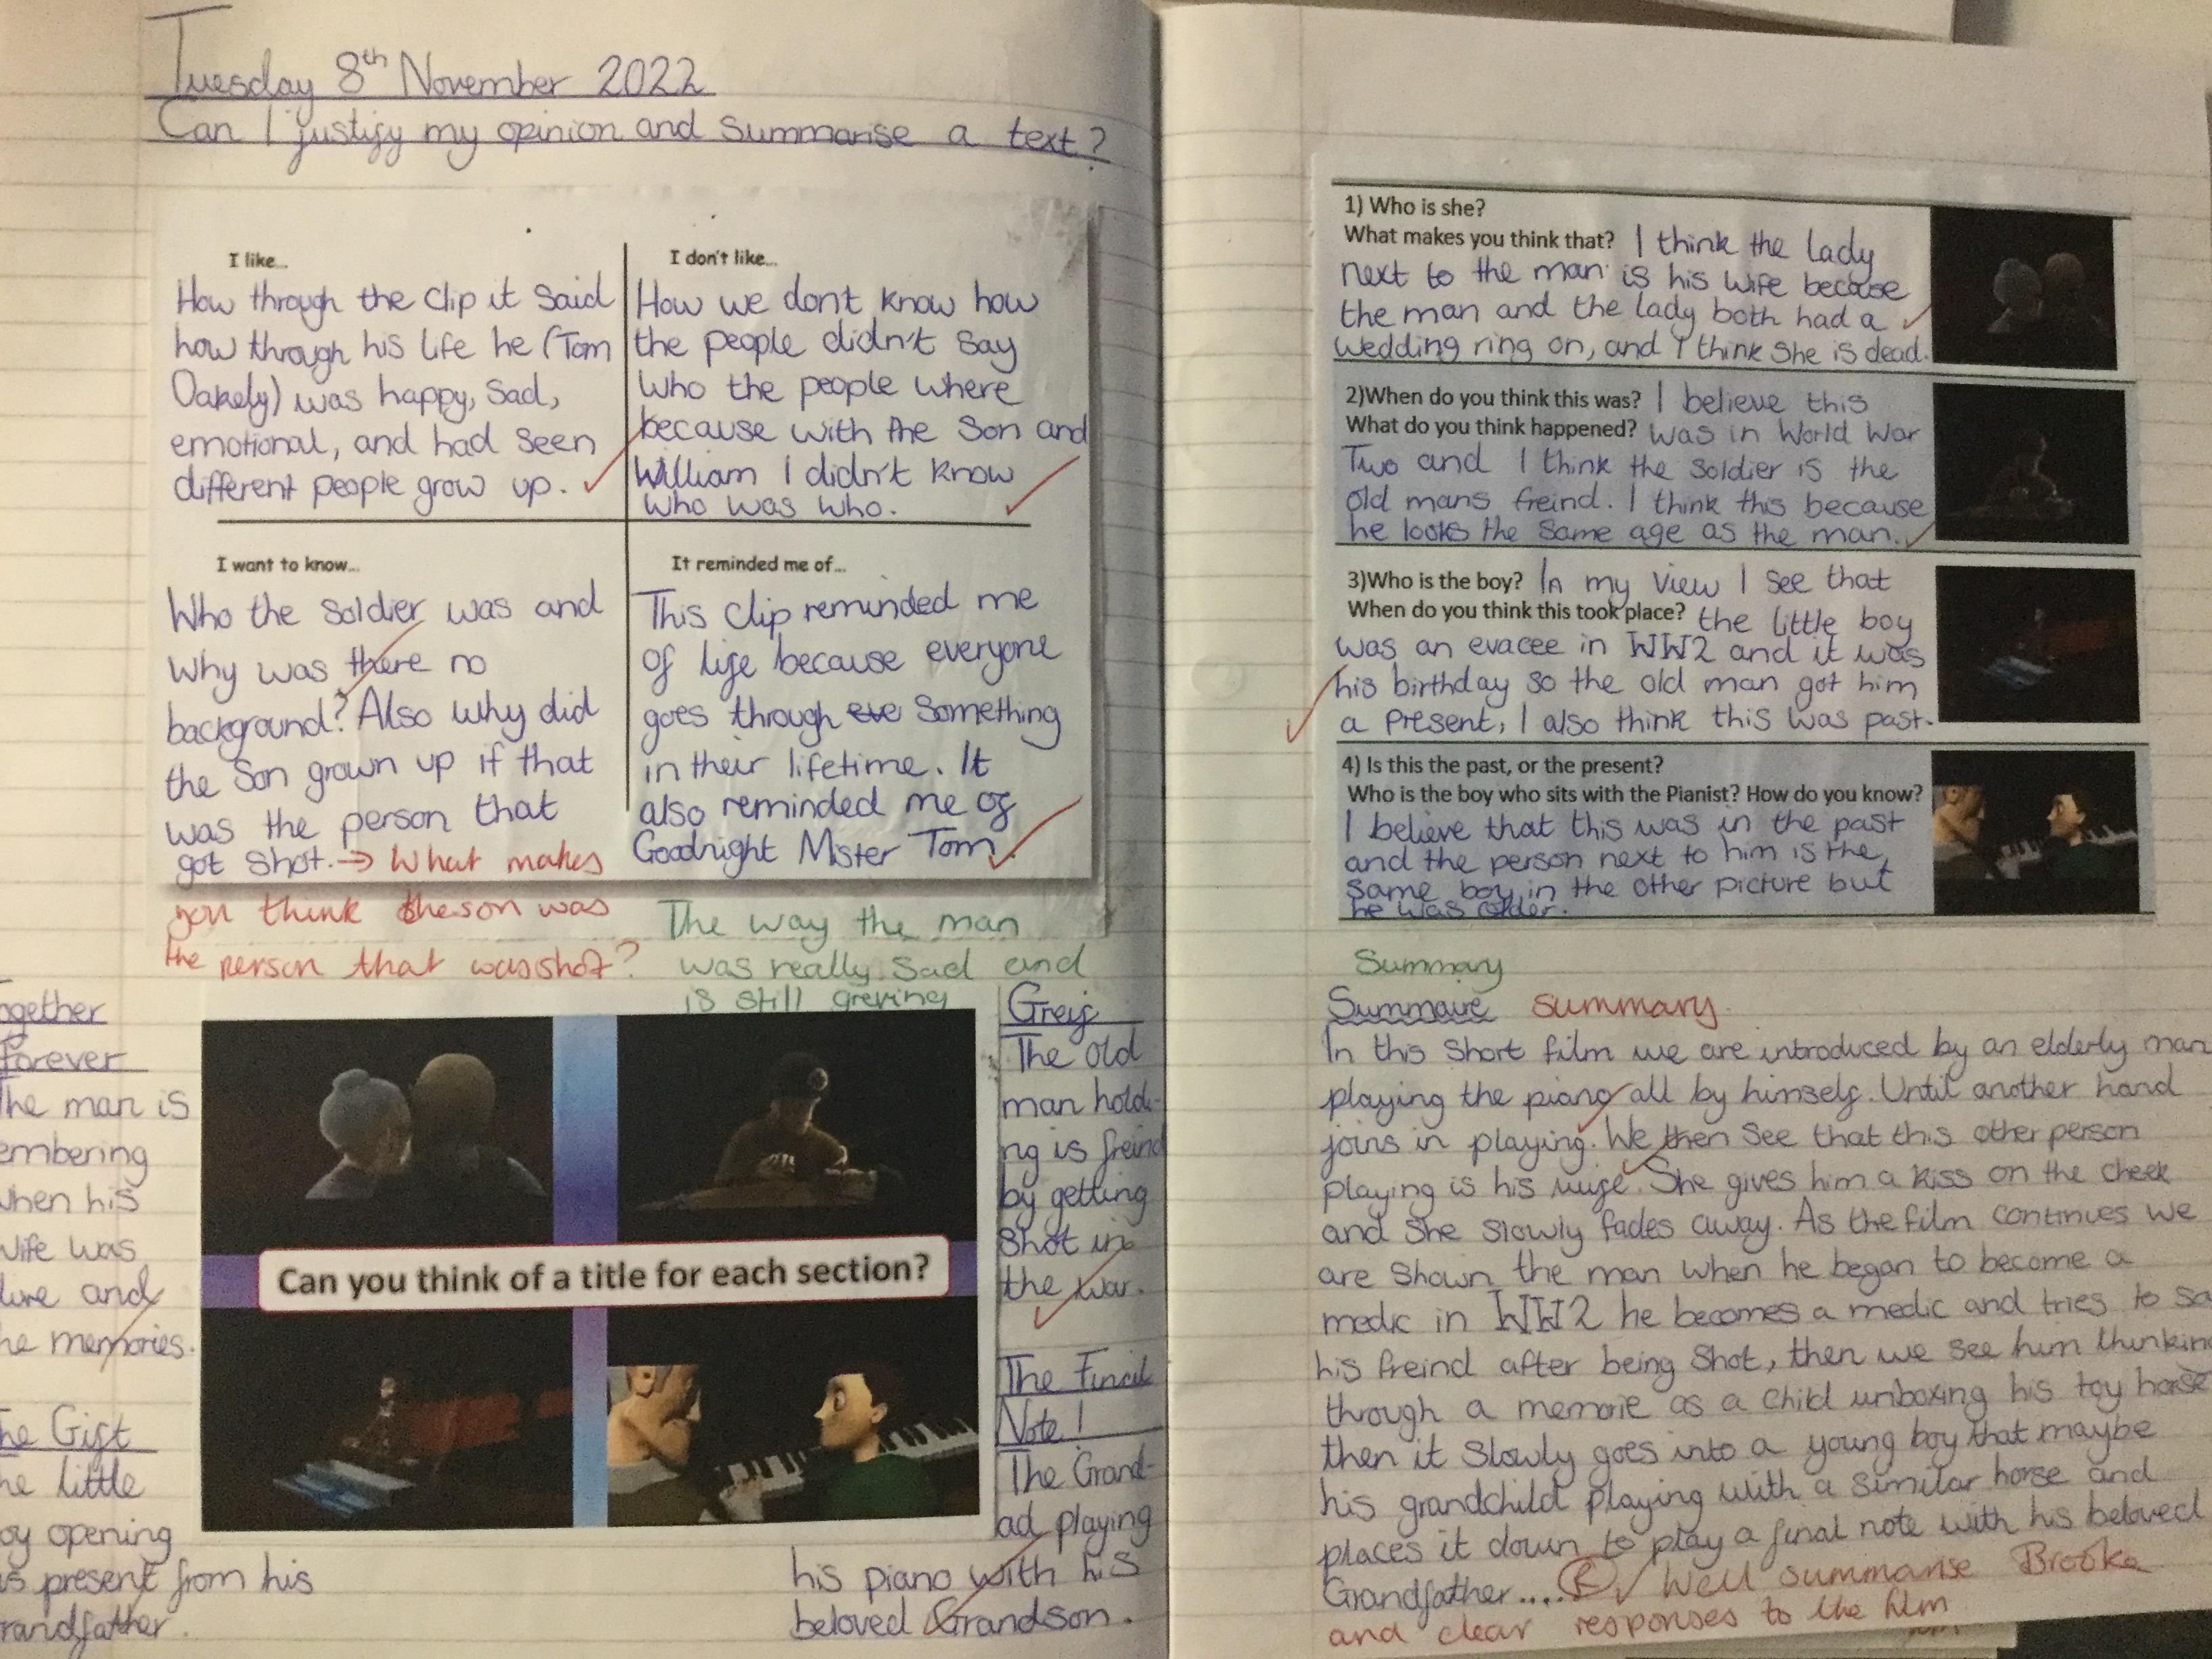 Tuesday 8th November 2022
Can I justify my opinion and summarise a text?
I like...
How through the clip it said
how through his life he (Tom
Oakely) was happy, sad,
emotional, and had seen
different people grow up.
I don't like...
How we don't know how
the people didn't say
who the people where
because with the son and
William I didn't know
who was who.
I want to know...
Who the soldier was and
why was there no
background? Also why did
the son grown up if that
was the person that
got shot. → What makes
you think the son was
the person that was shot?
It reminded me of...
This clip reminded me
of life because everyone
goes through eve something
in their lifetime. It
also reminded me of
Goodnight Mister Tom.
The way the man
was really sad and
is still greving
ogether
forever
he man is
embering
when his
wife was
live and
he memories.
he Gift
he little
oy opening
is present from his
randfather.
Can you think of a title for each section?
Greif
The old
man holdi-
ng is freind
by getting
shot in
the war.
The Final
Note!
The Grand-
ad playing
his piano with his
beloved Grandson.
1) Who is she?
What makes you think that? I think the lady
next to the man is his wife because
the man and the lady both had a
wedding ring on, and I think she is dead.
2)When do you think this was? I believe this
What do you think happened? was in World War
Two and I think the soldier is the
old mans freind. I think this because
he looks the same age as the man.
3)Who is the boy? In my view I see that
When do you think this took place? the little boy
was an evacee in WW2 and it was
his birthday so the old man got him
a present, I also think this was past.
4) Is this the past, or the present?
Who is the boy who sits with the Pianist? How do you know?
I believe that this was in the past
and the person next to him is the
same boy in the other picture but
he was older.
Summary
Summaire summary
In this short film we are introduced by an elderly man
playing the piano all by himself. Until another hand
joins in playing. We then see that this other person
playing is his wife. She gives him a kiss on the cheek
and she slowly fades away. As the film continues we
are shown the man when he began to become a
medic in WW2 he becomes a medic and tries to sa
his freind after being shot, then we see him thinkin
through a memorie as a child unboxing his toy horse
then it slowly goes into a young boy that maybe
his grandchild playing with a similar horse and
places it down to play a final note with his beloved
Grandfather.... R Well summarise Brooke
and clear responses to the film